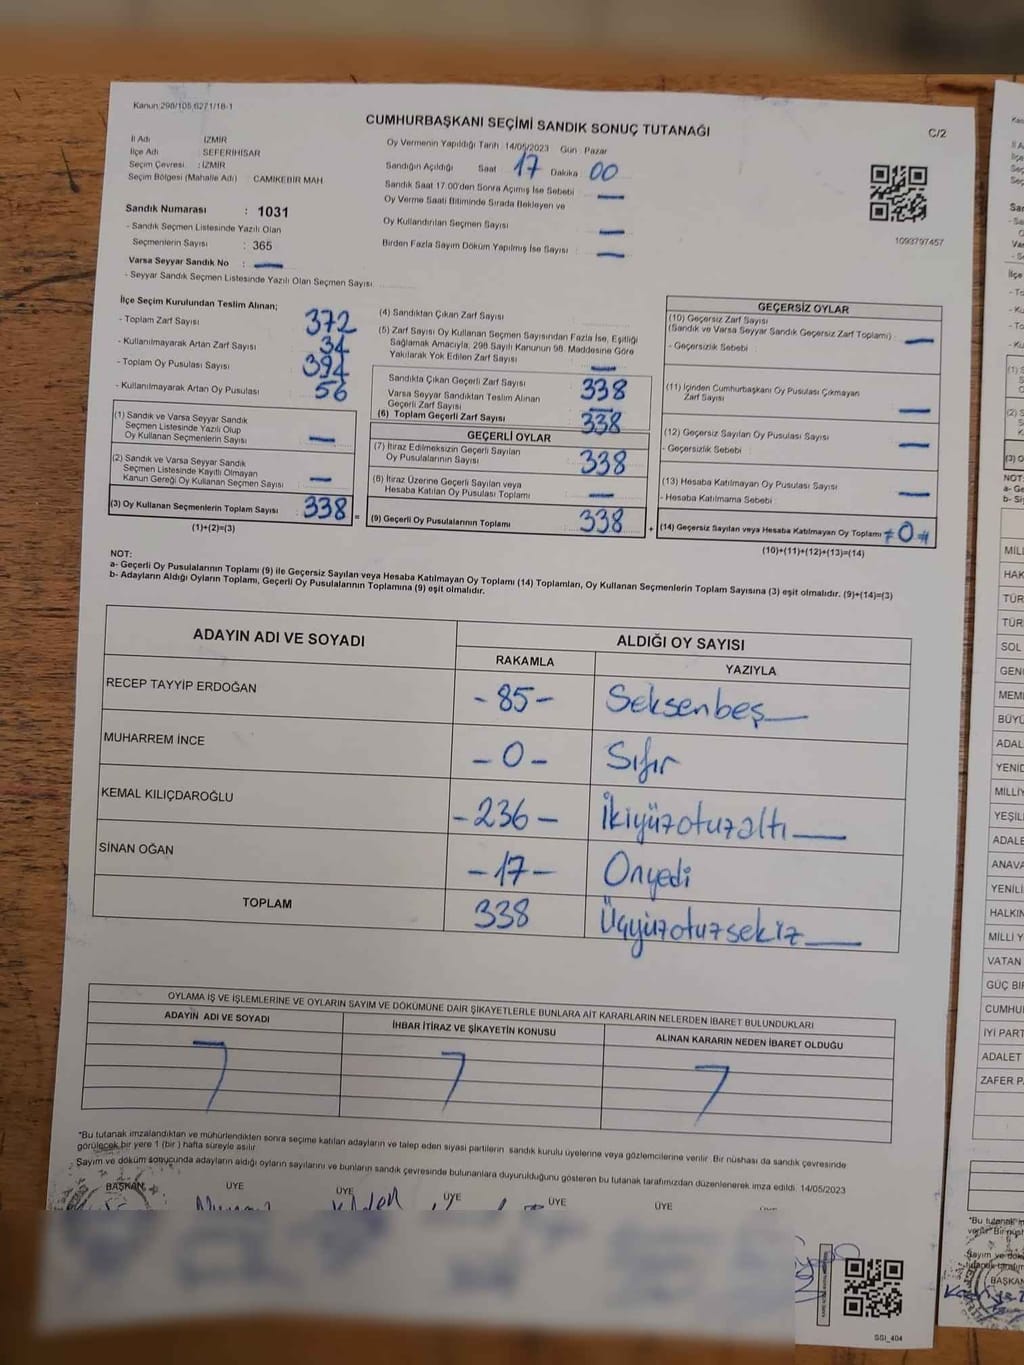 Kanun:298/105,6271/18-1
CUMHURBAŞKANI SEÇİMİ SANDIK SONUÇ TUTANAĞI
C/2
İl Adı : İZMİR
İlçe Adı : SEFERİHİSAR
Seçim Çevresi : İZMİR
Seçim Bölgesi (Mahalle Adı) : CAMİKEBİR MAH
Sandık Numarası : 1031
- Sandık Seçmen Listesinde Yazılı Olan
Seçmenlerin Sayısı : 365
Varsa Seyyar Sandık No : —
- Seyyar Sandık Seçmen Listesinde Yazılı Olan Seçmen Sayısı:
Oy Vermenin Yapıldığı Tarih : 14/05/2023 Gün : Pazar
Sandığın Açıldığı Saat 17 Dakika : 00
Sandık Saat 17:00'den Sonra Açılmış İse Sebebi : —
Oy Verme Saati Bitiminde Sırada Bekleyen ve
Oy Kullandırılan Seçmen Sayısı : —
Birden Fazla Sayım Döküm Yapılmış İse Sayısı : —
1093797457
İlçe Seçim Kurulundan Teslim Alınan;
- Toplam Zarf Sayısı : 372
- Kullanılmayarak Artan Zarf Sayısı : 34
- Toplam Oy Pusulası Sayısı : 394
- Kullanılmayarak Artan Oy Pusulası : 56
(1) Sandık ve Varsa Seyyar Sandık
Seçmen Listesinde Yazılı Olup
Oy Kullanan Seçmenlerin Sayısı : —
(2) Sandık ve Varsa Seyyar Sandık
Seçmen Listesinde Kayıtlı Olmayan
Kanun Gereği Oy Kullanan Seçmen Sayısı : —
(3) Oy Kullanan Seçmenlerin Toplam Sayısı : 338 =
(1)+(2)=(3)
(4) Sandıktan Çıkan Zarf Sayısı :
(5) Zarf Sayısı Oy Kullanan Seçmen Sayısından Fazla İse, Eşitliği
Sağlamak Amacıyla, 298 Sayılı Kanunun 98. Maddesine Göre
Yakılarak Yok Edilen Zarf Sayısı : —
Sandıkta Çıkan Geçerli Zarf Sayısı : 338
Varsa Seyyar Sandıktan Teslim Alınan
Geçerli Zarf Sayısı : —
(6) Toplam Geçerli Zarf Sayısı : 338
GEÇERLİ OYLAR
(7) İtiraz Edilmeksizin Geçerli Sayılan
Oy Pusulalarının Sayısı : 338
(8) İtiraz Üzerine Geçerli Sayılan veya
Hesaba Katılan Oy Pusulası Toplamı : —
(9) Geçerli Oy Pusulalarının Toplamı : 338 +
GEÇERSİZ OYLAR
(10) Geçersiz Zarf Sayısı
(Sandık ve Varsa Seyyar Sandık Geçersiz Zarf Toplamı) : —
- Geçersizlik Sebebi :
(11) İçinden Cumhurbaşkanı Oy Pusulası Çıkmayan
Zarf Sayısı : —
(12) Geçersiz Sayılan Oy Pusulası Sayısı : —
- Geçersizlik Sebebi :
(13) Hesaba Katılmayan Oy Pusulası Sayısı : —
- Hesaba Katılmama Sebebi :
(14) Geçersiz Sayılan veya Hesaba Katılmayan Oy Toplamı : # 0 #
(10)+(11)+(12)+(13)=(14)
NOT:
a- Geçerli Oy Pusulalarının Toplamı (9) ile Geçersiz Sayılan veya Hesaba Katılmayan Oy Toplamı (14) Toplamları, Oy Kullanan Seçmenlerin Toplam Sayısına (3) eşit olmalıdır. (9)+(14)=(3)
b- Adayların Aldığı Oyların Toplamı, Geçerli Oy Pusulalarının Toplamına (9) eşit olmalıdır.
ADAYIN ADI VE SOYADI
ALDIĞI OY SAYISI
RAKAMLA
YAZIYLA
RECEP TAYYİP ERDOĞAN -85- Seksenbeş
MUHARREM İNCE -0- Sıfır
KEMAL KILIÇDAROĞLU -236- İkiyüzotuzaltı
SİNAN OĞAN -17- Onyedi
TOPLAM 338 Üçyüzotuzsekiz
OYLAMA İŞ VE İŞLEMLERİNE VE OYLARIN SAYIM VE DÖKÜMÜNE DAİR ŞİKAYETLERLE BUNLARA AİT KARARLARIN NELERDEN İBARET BULUNDUKLARI
ADAYIN ADI VE SOYADI
İHBAR İTİRAZ VE ŞİKAYETİN KONUSU
ALINAN KARARIN NEDEN İBARET OLDUĞU
*Bu tutanak imzalandıktan ve mühürlendikten sonra seçime katılan adayların ve talep eden siyasi partilerin sandık kurulu üyelerine veya gözlemcilerine verilir. Bir nüshası da sandık çevresinde
görülecek bir yere 1 (bir) hafta süreyle asılır.
Sayım ve döküm sonucunda adayların aldığı oyların sayılarını ve bunların sandık çevresinde bulunanlara duyurulduğunu gösteren bu tutanak tarafımızdan düzenlenerek imza edildi. 14/05/2023
BAŞKAN ÜYE ÜYE ÜYE ÜYE ÜYE
SSI_404